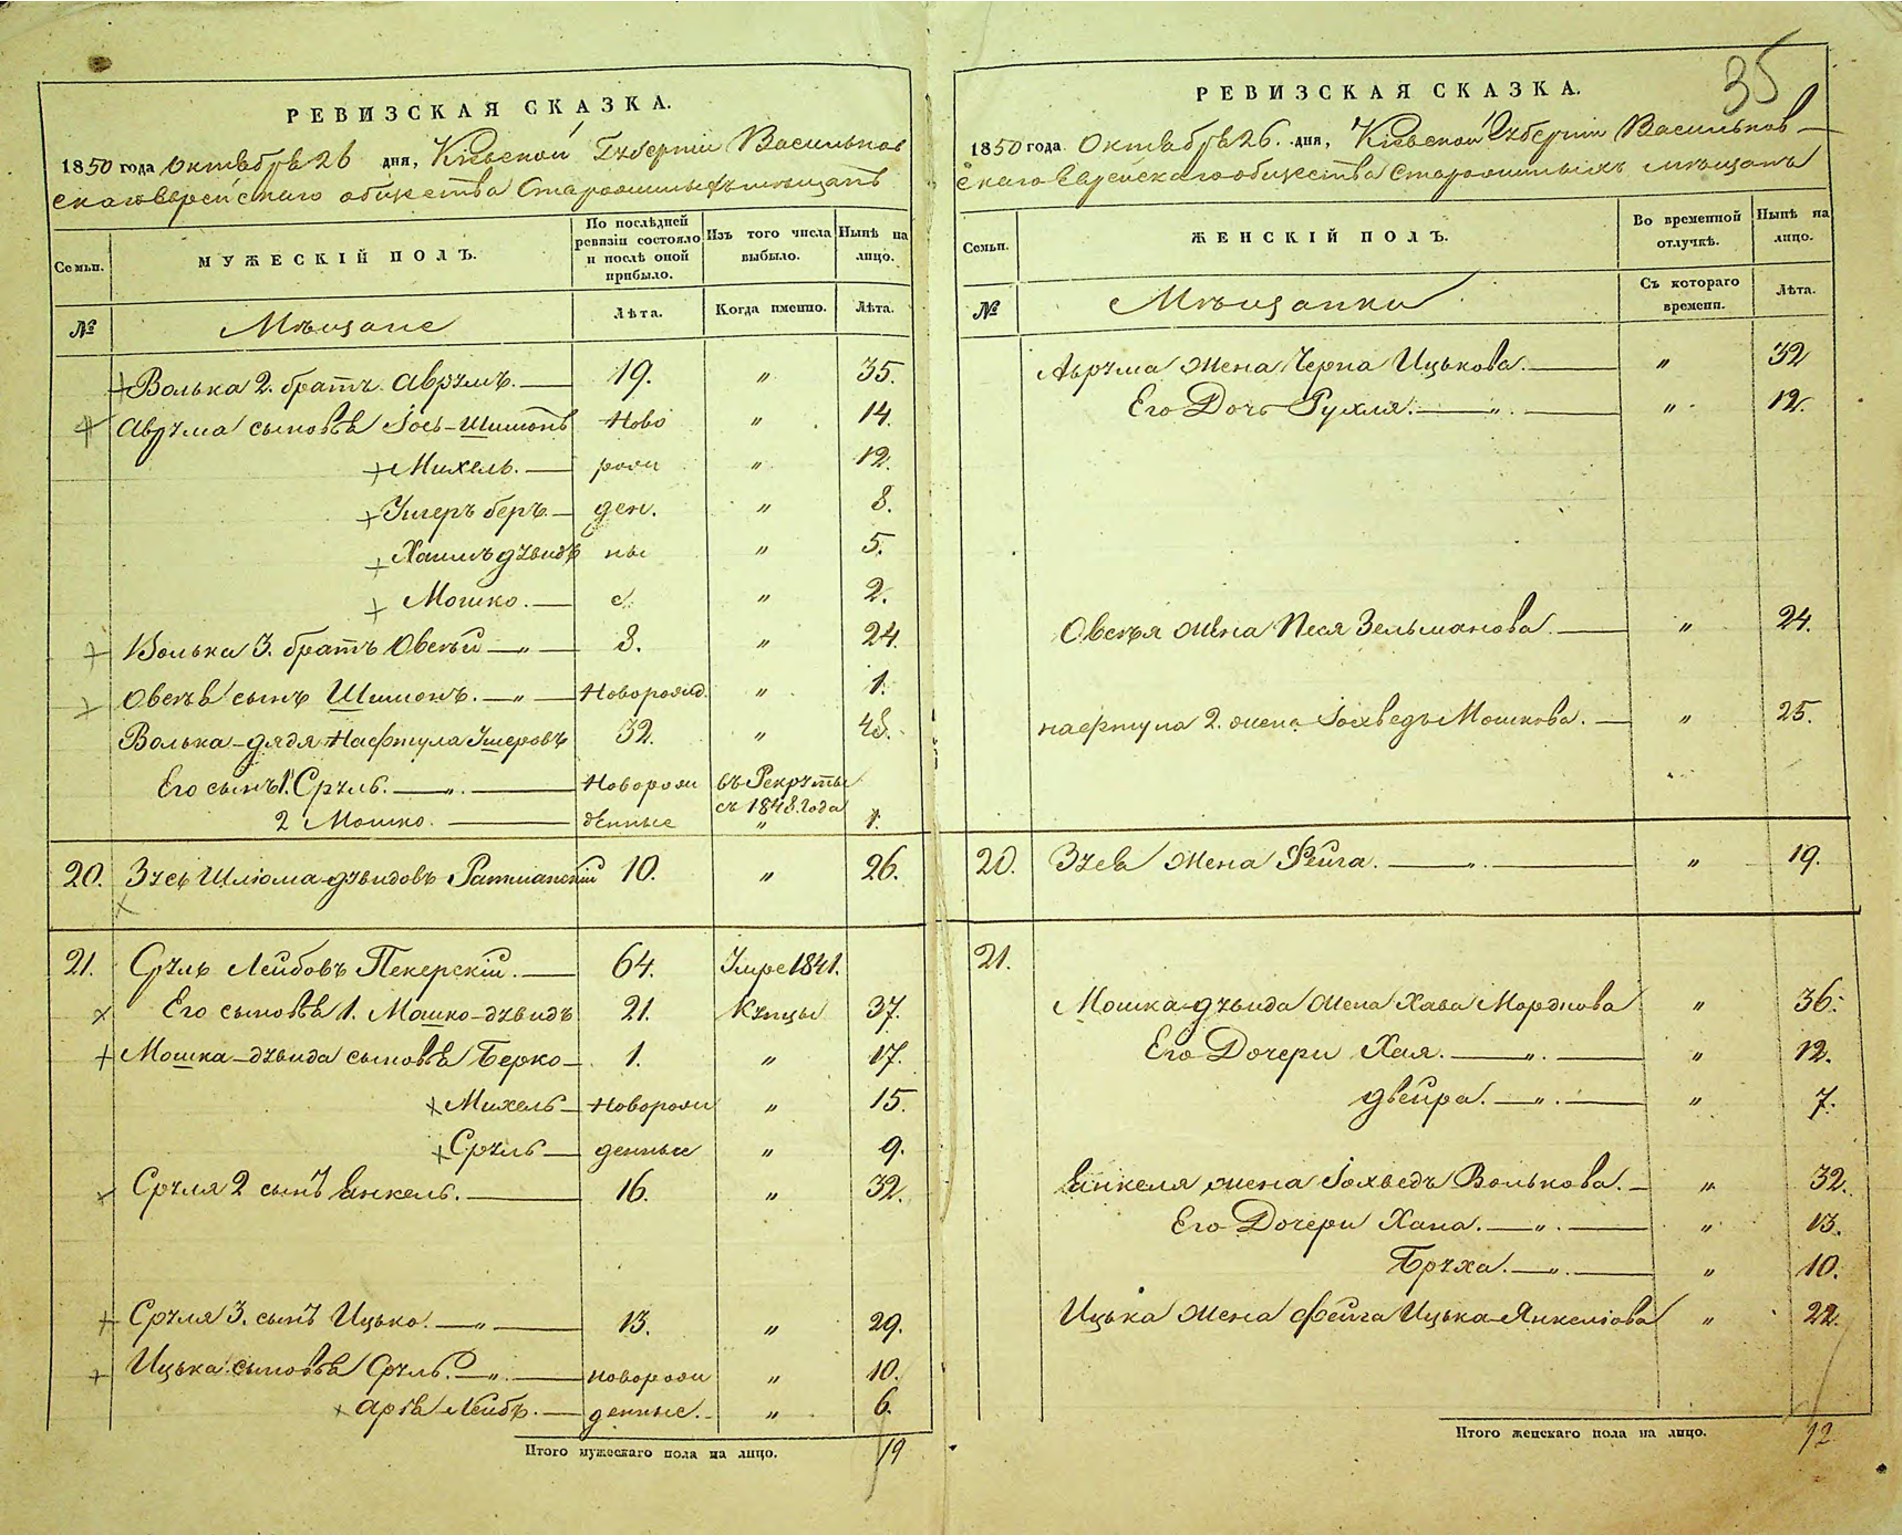 35
РЕВИЗСКАЯ СКАЗКА.
1850 года Октября 26 дня, Кіевской Губерніи Васильков
скаго еврейскаго общества Старожилыхъ мѣщанъ
Семьи.
МУЖЕСКІЙ ПОЛЪ.
По послѣдней ревизіи состояло и послѣ оной прибыло.
Изъ того числа выбыло.
Нынѣ на лицо.
№
Мѣщане
Лѣта.
Когда именно.
Лѣта.
Волька 2. братъ Аврумъ. 19. " 35.
Аврума сыновья Іось-Шимонъ Ново " 14.
Михель. рож " 12.
Ушеръ беръ ден. " 8.
Хаимъ дувидъ ны " 5.
Мошко. е " 2.
Волька 3. братъ Овсѣй " 8. " 24.
Овсѣя сынъ Шимонъ. " Новорожд. " 1.
Волька дядя Нафтула Ушеровъ 32. " 48.
Его сынъ 1. Сруль. " Новорож въ Рекруты
съ 1848. года
2 Мошко. денные " 1.
20. Зусь Шлюома дувидовъ Ратманскій 10. " 26.
21. Сруль Лейбовъ Пекерскій. 64. Умре 1841.
Его сыновья 1. Мошко-дувидъ 21. Купцы 37.
Мошка-дувида сыновья Берко 1. " 17.
Михель Новорож " 15.
Сруль денные " 9.
Сруля 2 сынъ Янкель. 16. " 32.
Сруля 3. сынъ Ицько. " 13. " 29.
Ицька сыновья Сруль. " новорож " 10.
Арія Лейбъ. денные. " 6.
Итого мужескаго пола на лицо. 19
РЕВИЗСКАЯ СКАЗКА.
1850 года Октября 26. дня, Кіевской Губерніи Васильков
скаго Еврейскаго общества Старожилыхъ мѣщанъ
Семьи.
ЖЕНСКІЙ ПОЛЪ.
Во временной отлучкѣ.
Нынѣ на лицо.
№
Мѣщанки
Съ котораго времени.
Лѣта.
Аврума жена Черна Ицькова. " 32
Его Дочь Рухля. " " 12.
Овсѣя жена Песя Зельманова. " 24.
нафтула 2. жена Іохведъ Мошкова. " 25.
20. Зуся жена Фейга. " " 19.
21.
Мошка-дувида жена Хава Мордкова " 36.
Его Дочери Хая. " " 12.
двейра. " " 7.
Янкеля жена Іохведъ Волькова. " 32.
Его Дочери Хана. " " 13.
Бруха. " " 10.
Ицька жена Фейга Ицька-Янкеліова " 22.
Итого женскаго пола на лицо. 12